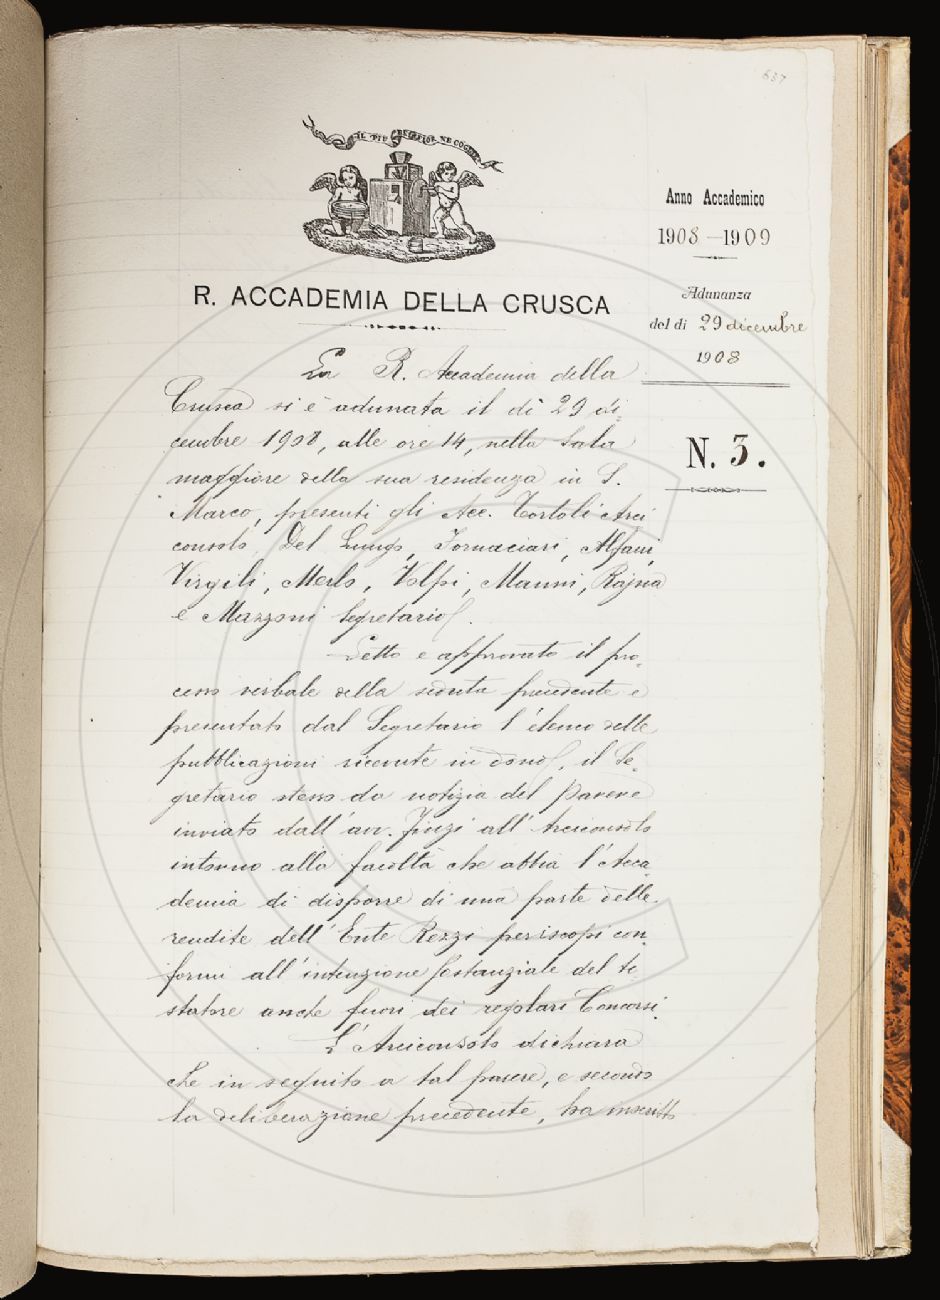 637
IL PIÙ BEL FIOR NE COGLIE
Anno Accademico
1908-1909
Adunanza
del dì 29 dicembre
1908
N. 3.
R. ACCADEMIA DELLA CRUSCA
La R. Accademia della
Crusca si è adunata il dì 29 di-
cembre 1908, alle ore 14, nella Sala
maggiore della sua residenza in S.
Marco, presenti gli Acc. Tortoli Arci
consolo, Del Lungo, Fornaciari, Alfani,
Virgili, Merlo, Volpi, Manni, Rajna
e Mazzoni Segretario.
Letto e approvato il pro-
cesso verbale della seduta precedente e
presentato dal Segretario l'elenco delle
pubblicazioni ricevute in dono, il Se-
gretario stesso da notizia del parere
inviato dall'avv. all'Arciconsolo
intorno alla facoltà che abbia l'Acca-
demia di disporre di una parte delle
rendite dell'Ente Rezzi per iscopi con-
formi all'intenzione sostanziale del te
statore anche fuori dei regolari Concorsi.
L'Arciconsolo dichiara
che in seguito a tal parere, e secondo
la deliberazione precedente, ha inscritto